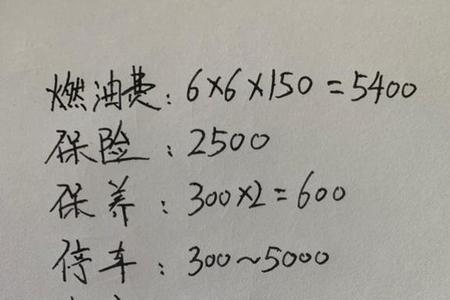 燃油费：6×6×150=5400
保险：2500
保养：300×2=600
停车：300~5000